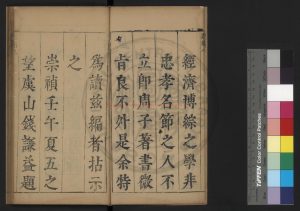 經濟博綜之學非
忠孝名節之人不
立即周子著書微
肯良不外是余特
爲讀茲編者拈示
之
崇禎壬午夏五之
望虞山錢謙益題
TIFFEN Color Control Patches